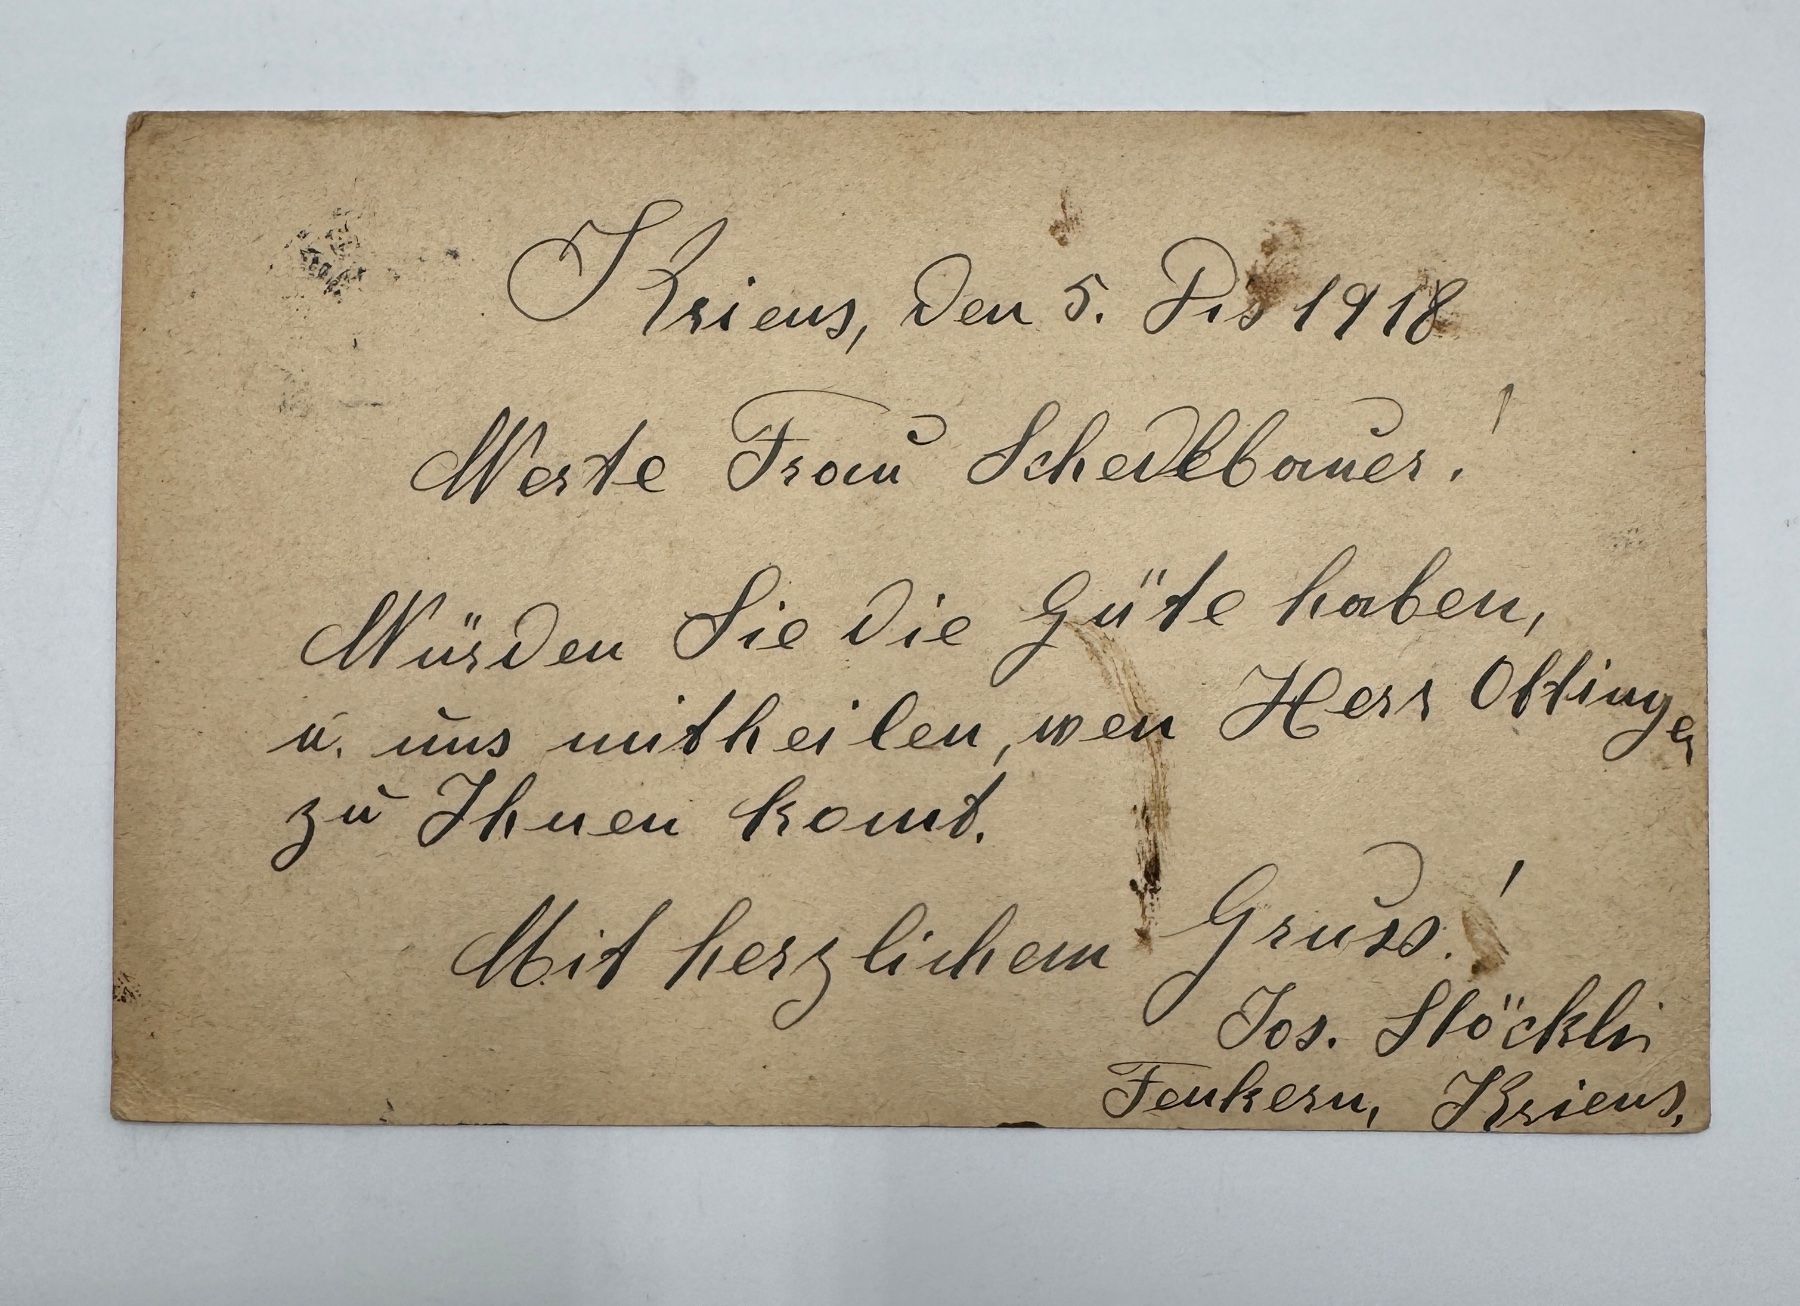 Kriens, den 5. Dez 1918
Werte Frau Schedlbauer!
Würden Sie die Güte haben,
u. uns mitheilen, wen Herr Ottinger
zu Ihnen komt.
Mit herzlichem Gruss!
Jos. Stöckli
Fenkern, Kriens.